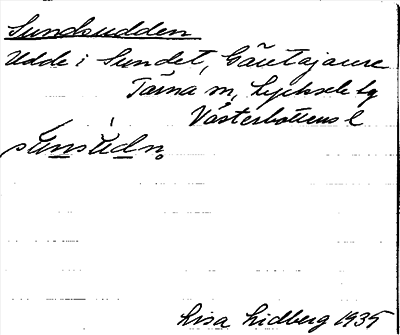 Sundsudden
Udde i Sundet, Gäutajaure
Tärna sn, Lycksele lg
Västerbottens l
súnsùdn̥
Lisa Lidberg 1935